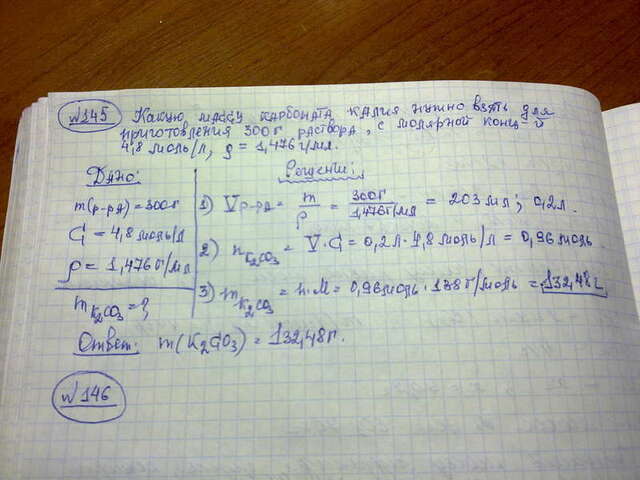 №145 Какую массу карбоната калия нужно взять для
приготовления 300г раствора, с молярной конц-й
4,8 моль/л, ρ = 1,476 г/мл.
Дано:
m(р-ра) = 300г
C = 4,8 моль/л
ρ = 1,476 г/мл
m K2CO3 = ?
Решение:
1) V р-ра = m/ρ = 300г/1,476г/мл = 203 мл; 0,2 л.
2) n K2CO3 = V·C = 0,2 л · 4,8 моль/л = 0,96 моль.
3) m K2CO3 = n·M = 0,96 моль · 138 г/моль = 132,48 г
Ответ: m(K2CO3) = 132,48 г.
№146